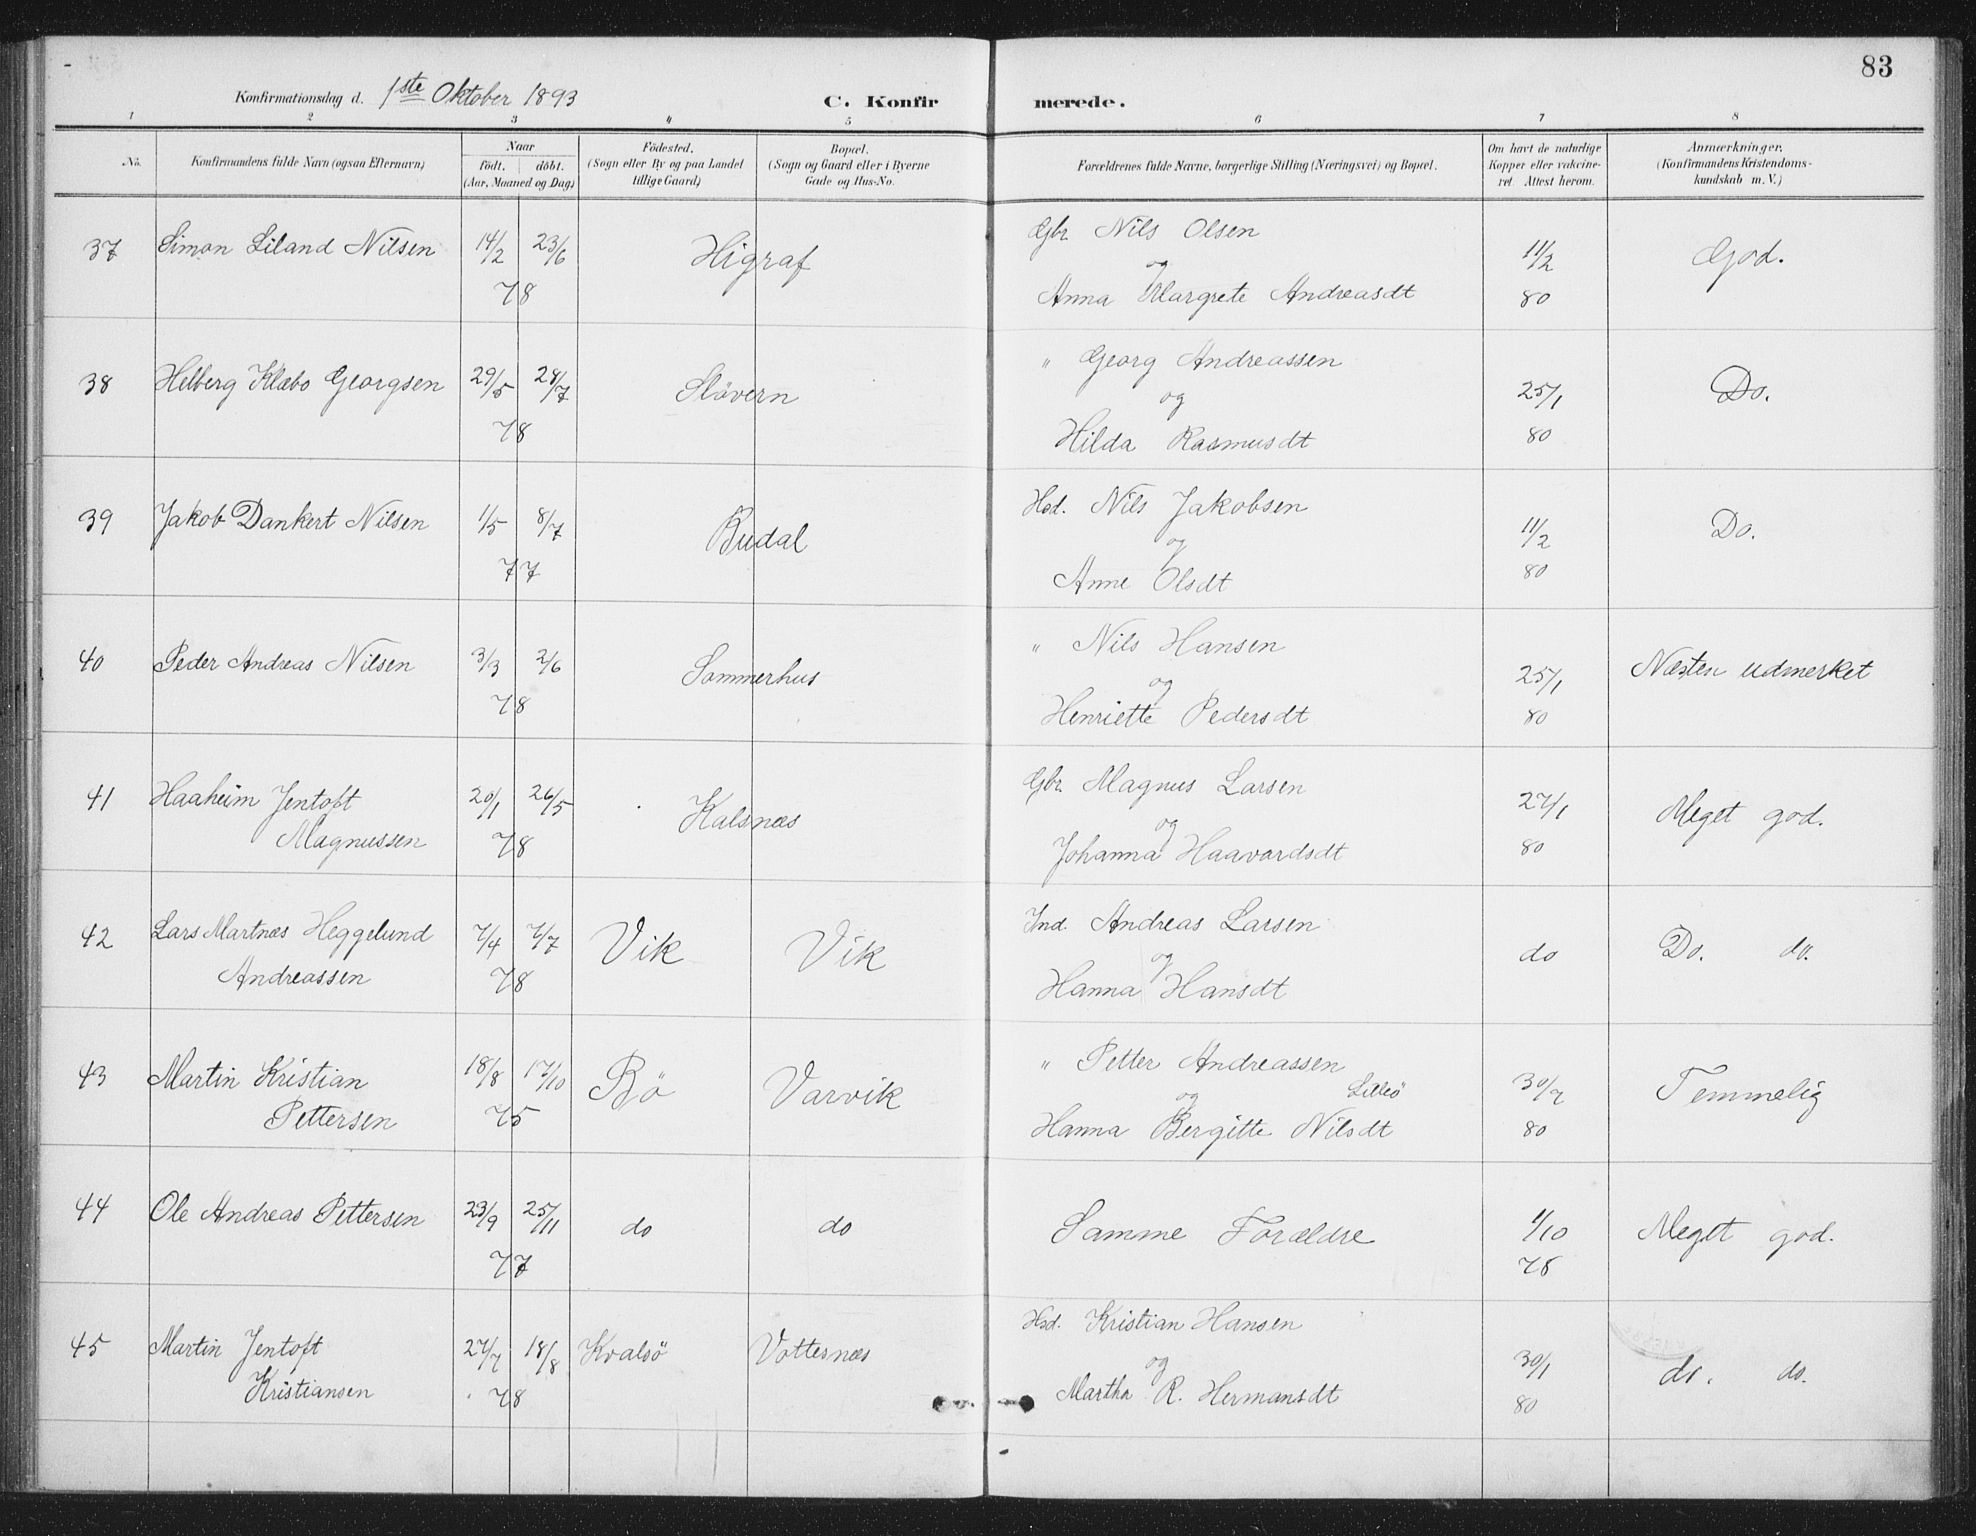 83
Konfirmationsdag d. 1ste Oktober 1893 C. Konfirmerede.
1 2 3 4 5 6 7 8
No. Konfirmandens fulde Navn (ogsaa Efternavn) Naar födt. döbt. (Aar, Maaned og Dag) Födested. (Sogn eller By og paa Landet tillige Gaard) Bopæl. (Sogn og Gaard eller i Byerne Gade og Hus-No. Forældrenes fulde Navne, borgerlige Stilling (Næringsvei) og Bopæl. Om havt de naturlige Kopper eller vakcineret. Attest herom. Anmærkninger. (Konfirmandens Kristendomskundskab m. V.)
37 Simon Liland Nilsen 14/2 23/6 78 Higraf Gbr. Nils Olsen og Anna Margrete Andreasdt 11/2 80 God.
38 Helberg Klæbo Georgsen 29/5 28/7 78 Slövern " Georg Andreassen og Hilda Rasmusdt 25/1 80 Do.
39 Jakob Dankert Nilsen 1/5 8/7 77 Budal Hsd. Nils Jakobsen og Anne Olsdt 11/2 80 Do.
40 Peder Andreas Nilsen 3/3 2/6 78 Sommerhus " Nils Hansen og Henriette Pedersdt 25/1 80 Næsten udmerket
41 Haaheim Jentoft Magnussen 20/1 26/5 78 Kalsnæs Gbr. Magnus Larsen og Johanna Haavardsdt 27/1 80 Meget god.
42 Lars Martnæs Heggelund Andreassen 7/4 7/7 78 Vik Vik Ind. Andreas Larsen og Hanna Hansdt do Do. do.
43 Martin Kristian Pettersen 18/8 17/10 75 Bö Varvik " Petter Andreassen og Lilleö Hanna Bergitte Nilsdt 30/7 80 Temmelig
44 Ole Andreas Pettersen 23/9 25/11 77 do do Samme Forældre 1/10 78 Meget god.
45 Martin Jentoft Kristiansen 27/7 18/8 78 Kvalsö Vottesnæs Hsd. Kristian Hansen og Martha R. Hermansdt 30/1 80 do. do.